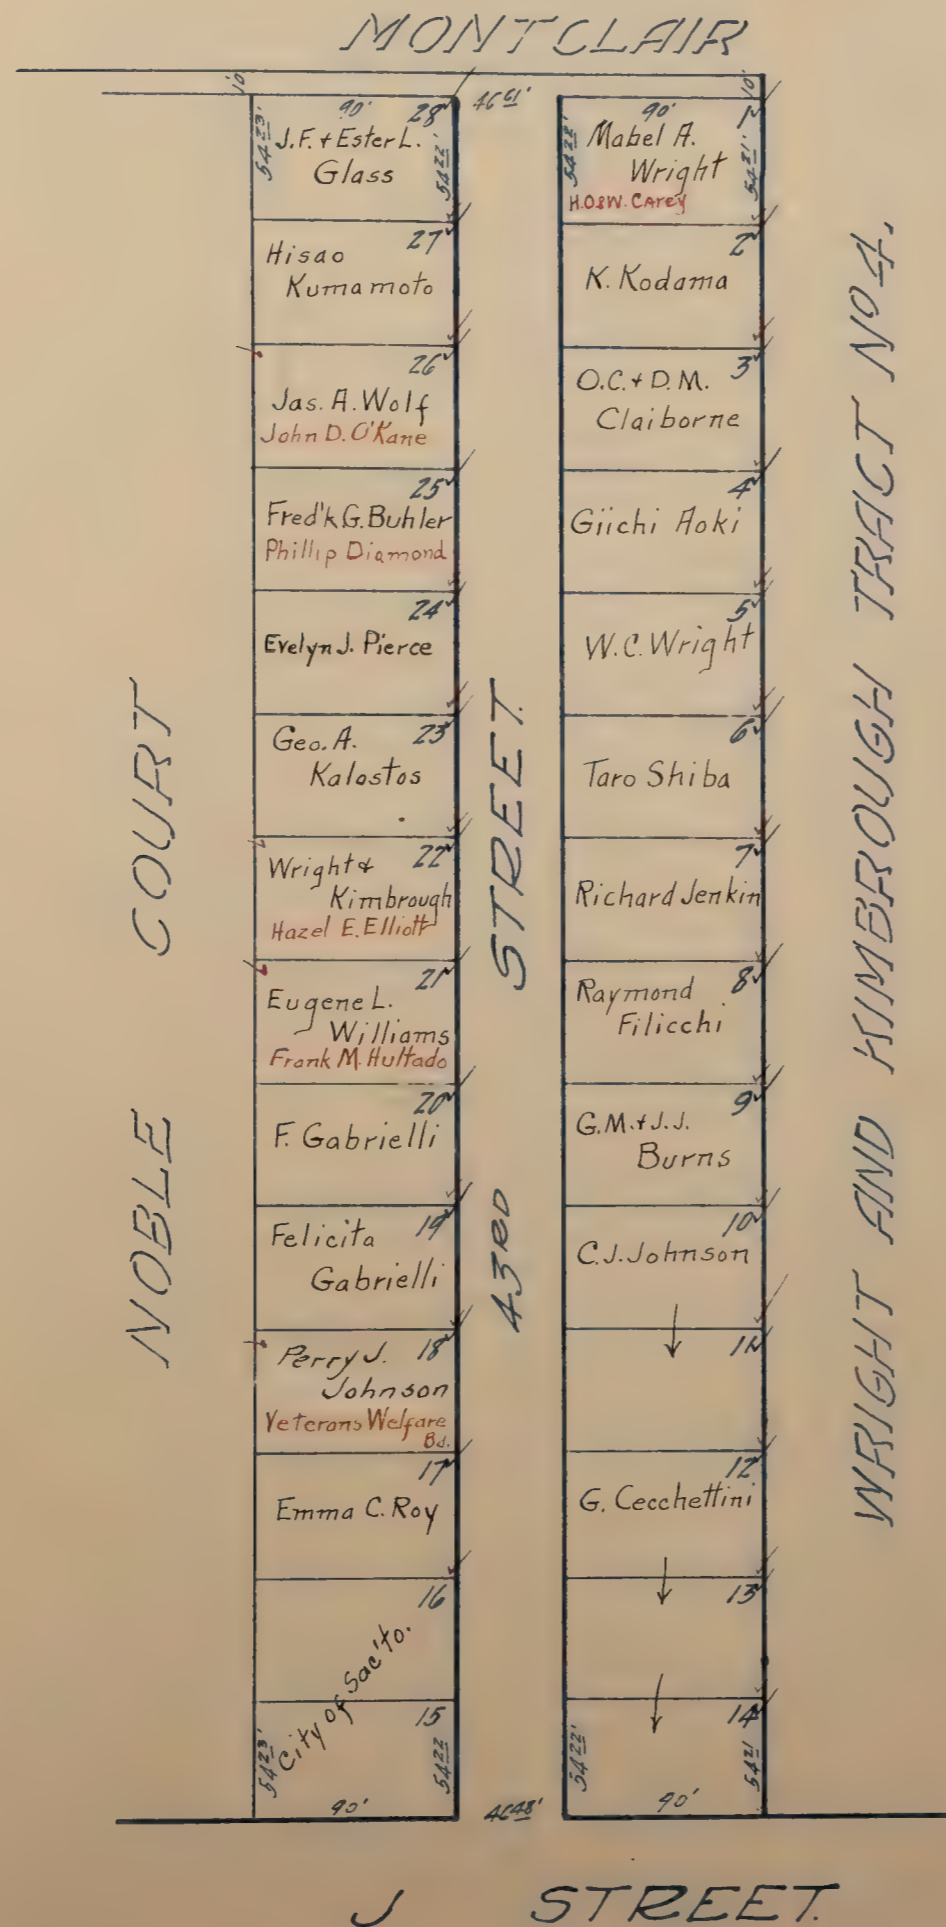 MONTCLAIR
10'
46 61'
10'
90'
28
54 23'
54 22'
J.F. + Ester L.
Glass
27
Hisao
Kumamoto
26
Jas. A. Wolf
John D. O'Kane
25
Fred'k G. Buhler
Phillip Diamond
24
Evelyn J. Pierce
23
Geo. A.
Kalostos
22
Wright &
Kimbrough
Hazel E. Elliott
21
Eugene L.
Williams
Frank M. Hultado
20
F. Gabrielli
19
Felicita
Gabrielli
18
Perry J.
Johnson
Veterans Welfare
Bd.
17
Emma C. Roy
16
City of Sac'to.
15
54 23'
54 22
90'
90'
1
54 22'
54 21'
Mabel A.
Wright
H.O&W. Carey
2
K. Kodama
3
O.C. + D.M.
Claiborne
4
Giichi Aoki
5
W.C. Wright
6
Taro Shiba
7
Richard Jenkin
8
Raymond
Filicchi
9
G.M. + J.J.
Burns
10
C.J. Johnson
11
12
G. Cecchettini
13
14
54 22'
54 21
90'
46 48'
NOBLE COURT
43RD STREET.
WRIGHT AND KIMBROUGH TRACT NO 4.
J STREET.